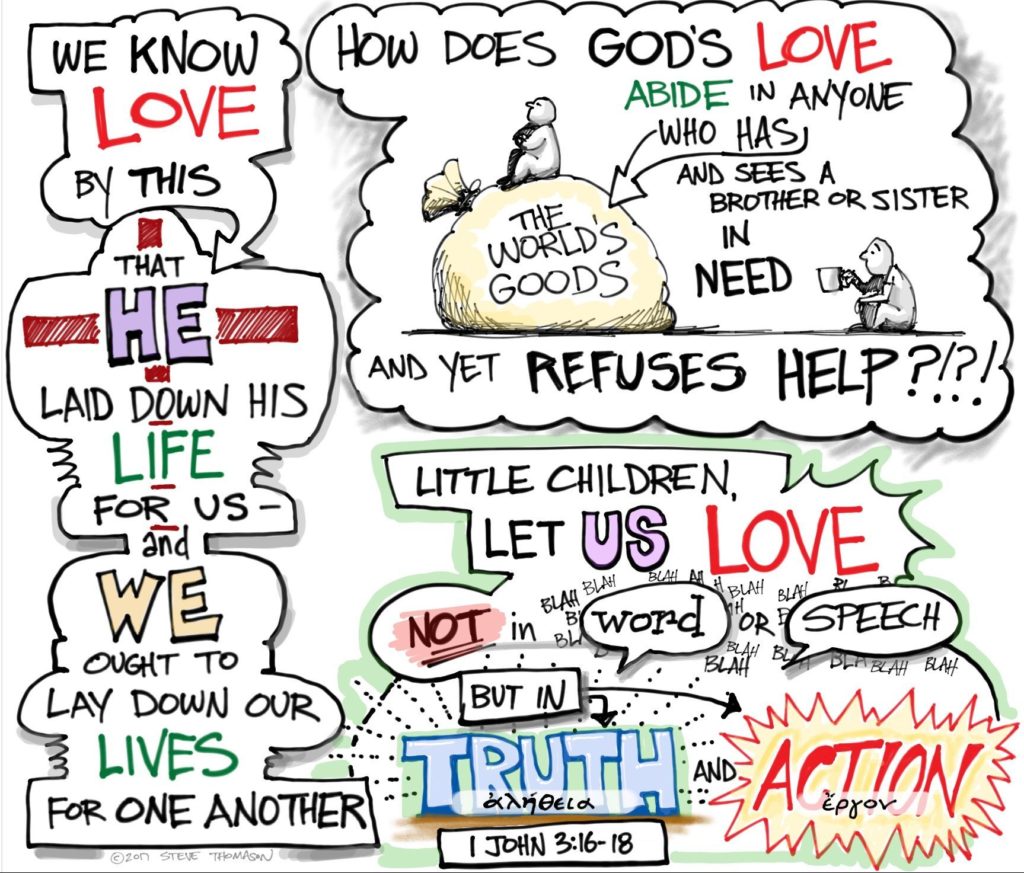 WE KNOW
LOVE
BY THIS
THAT
HE
LAID DOWN HIS
LIFE
FOR US –
and
WE
OUGHT TO
LAY DOWN OUR
LIVES
FOR ONE ANOTHER
©2017 STEVE THOMASON
HOW DOES GOD'S LOVE
ABIDE IN ANYONE
WHO HAS
AND SEES A
BROTHER OR SISTER
IN
NEED
THE
WORLD'S
GOODS
AND YET REFUSES HELP?!?!...
LITTLE CHILDREN,
LET US LOVE
BLAH BLAH BLAH BLAH
BLAH BLAH
NOT in word OR SPEECH
BLAH BLAH
BLAH BLAH BLAH BLAH
BUT IN
TRUTH AND ACTION
ἀλήθεια ἔργον
1 JOHN 3:16-18